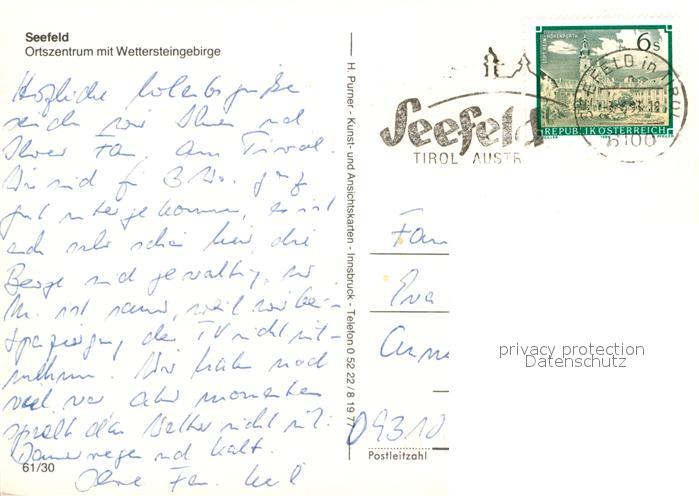 Seefeld
Ortszentrum mit Wettersteingebirge
Herzliche Urlaubsgrüße
senden wir Ihnen und
Ihrer Fam. aus Tirol.
Wir sind f. 3 Wo. ganz
gut untergekommen, es ist
auch sehr schön hier, die
Berge sind gewaltig, nur
M. ist sauer, weil wir beim
Spaziergang den TV nicht mit-
nehmen. Wir haben noch
viel vor aber momentan
spielt das Wetter nicht mit:
Dauerregen und kalt.
Ihre Fam.
61/30
H. Purner - Kunst- und Ansichtskarten - Innsbruck - Telefon 0 52 22 / 8 19 77
Seefeld
TIROL AUSTR
6 S
REPUBLIK ÖSTERREICH
SEEFELD in TIROL
6100
Fam
Eva
09310
Postleitzahl
privacy protection
Datenschutz